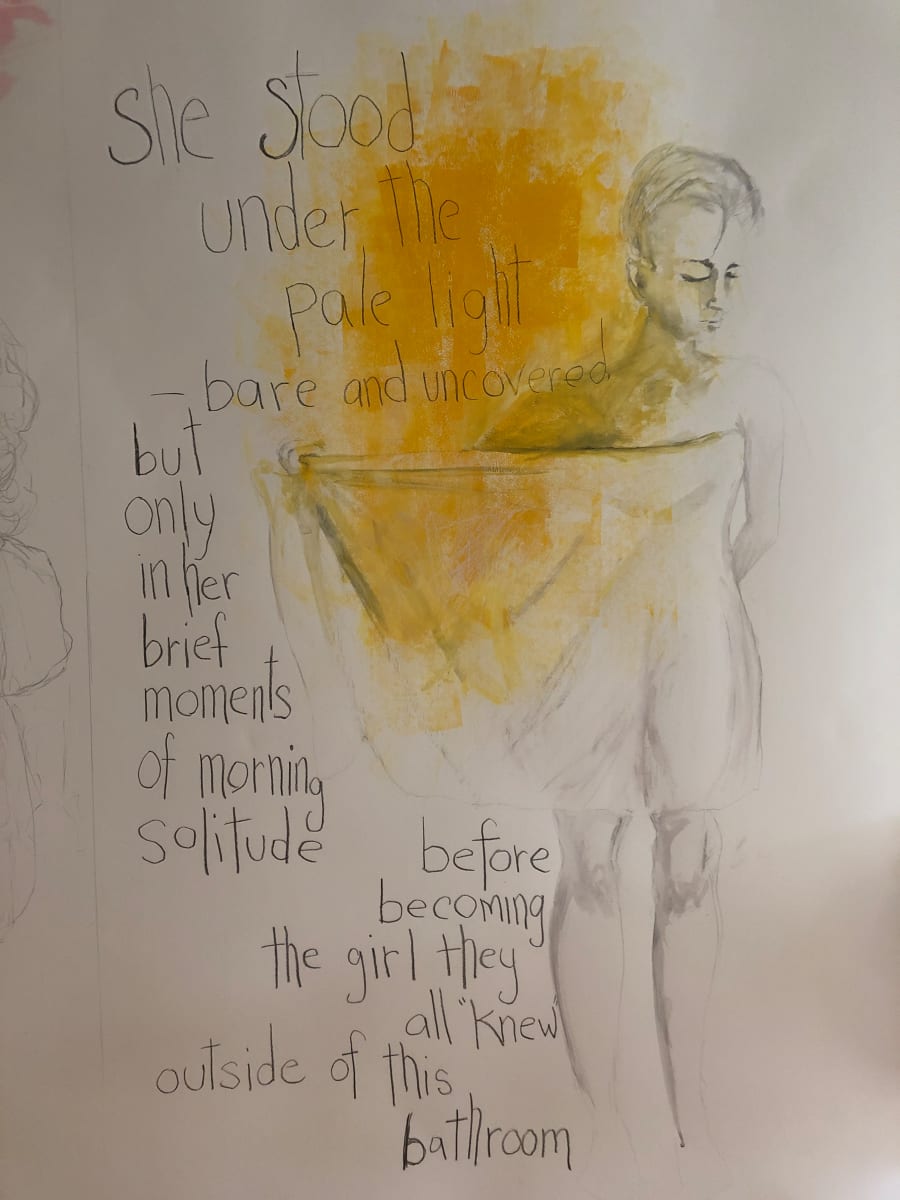 she stood
under the
pale light
– bare and uncovered
but
only
in her
brief
moments
of morning
solitude
before
becoming
the girl they
all "knew"
outside of this
bathroom